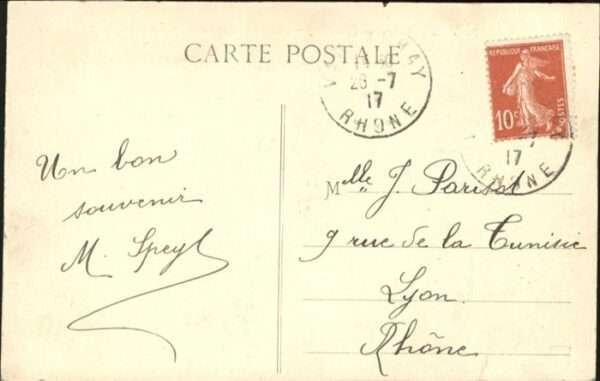 CARTE POSTALE
26 -7
17
RHONE
REPUBLIQUE FRANÇAISE
10c
POSTES
17
RHONE
Un bon
souvenir
M.
Mlle J. Parisot
9 rue de la Tunisie
Lyon
Rhône